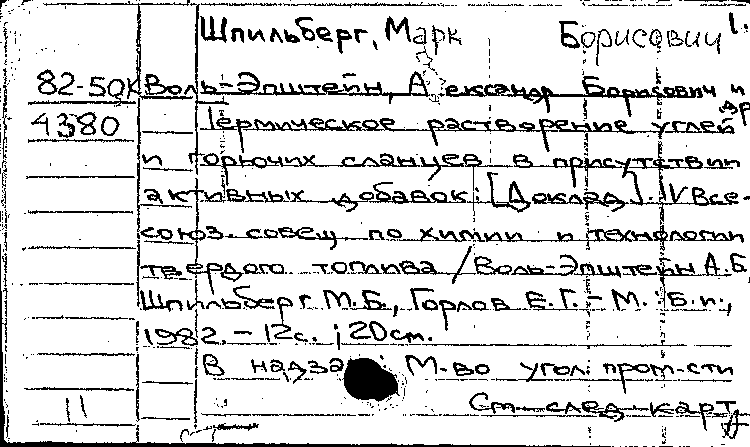 Шпильберг, Марк Борисович 1.
82-50К Воль-Эпштейн, Александр Борисович и др
4380 Термическое растворение углей
и горючих сланцев в присутствии
активных добавок: [Доклад]. IV Все-
союз. совещ. по химии и технологии
твердого топлива / Воль-Эпштейн А.Б.,
Шпильберг М.Б., Горлов Е.Г. - М.: Б.и.,
1982. - 12с. ; 20см.
В надзаг.: М-во угол. пром-сти
11 См. след. карт.